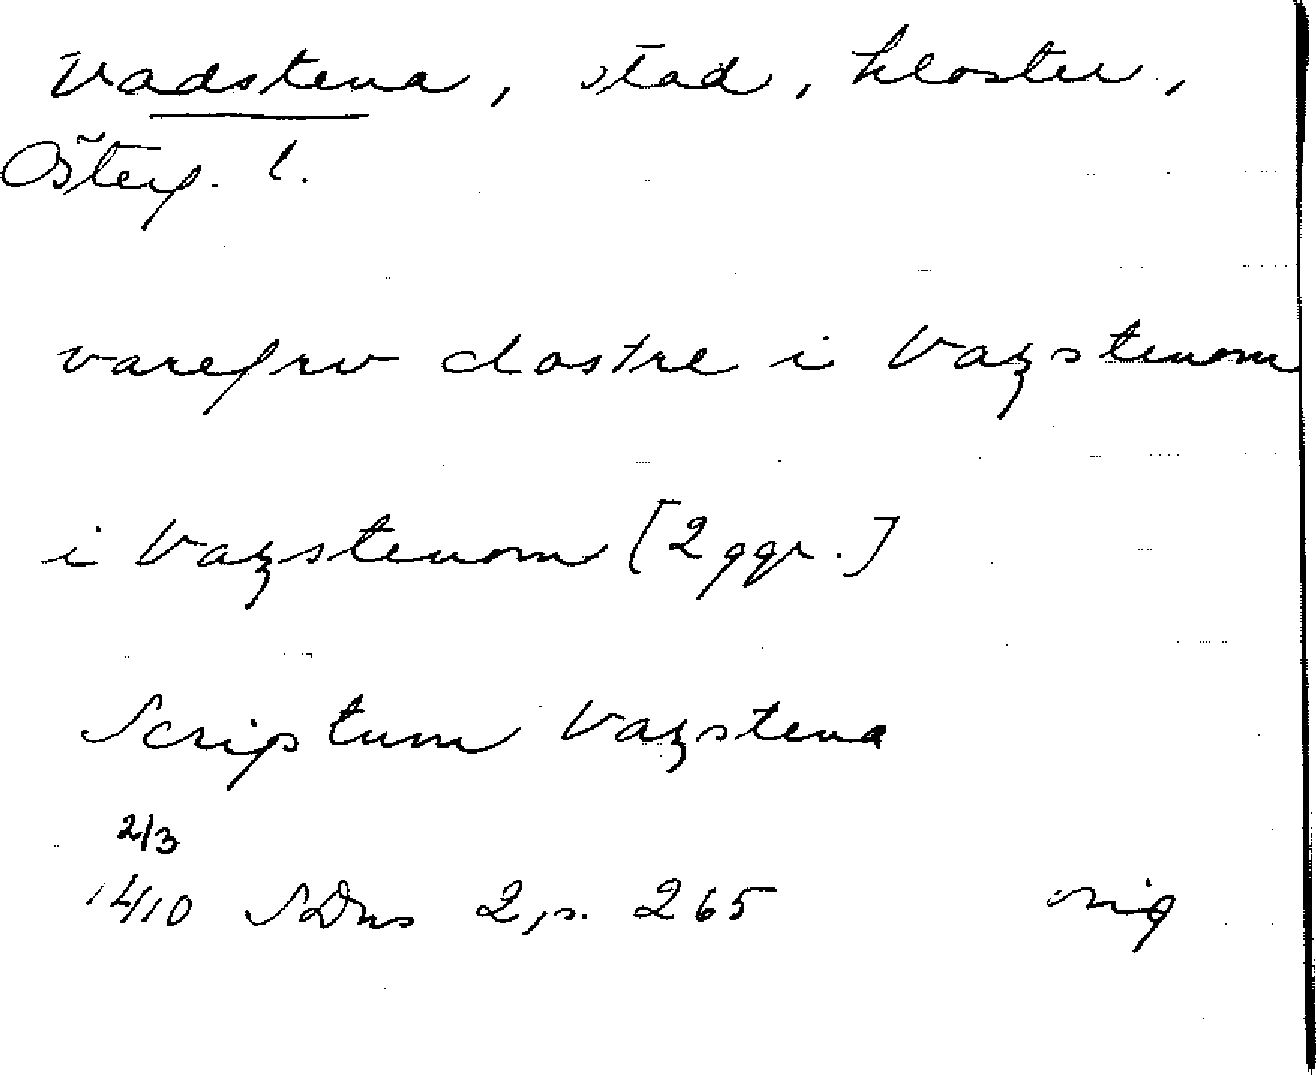 Vadstena, stad, kloster,
Österg. l.
varefrw clostre i Vazstenom
i Vazstenom [2 ggr.]
Scriptum Vazstena
2/3
1410 SDns 2, s. 265 orig